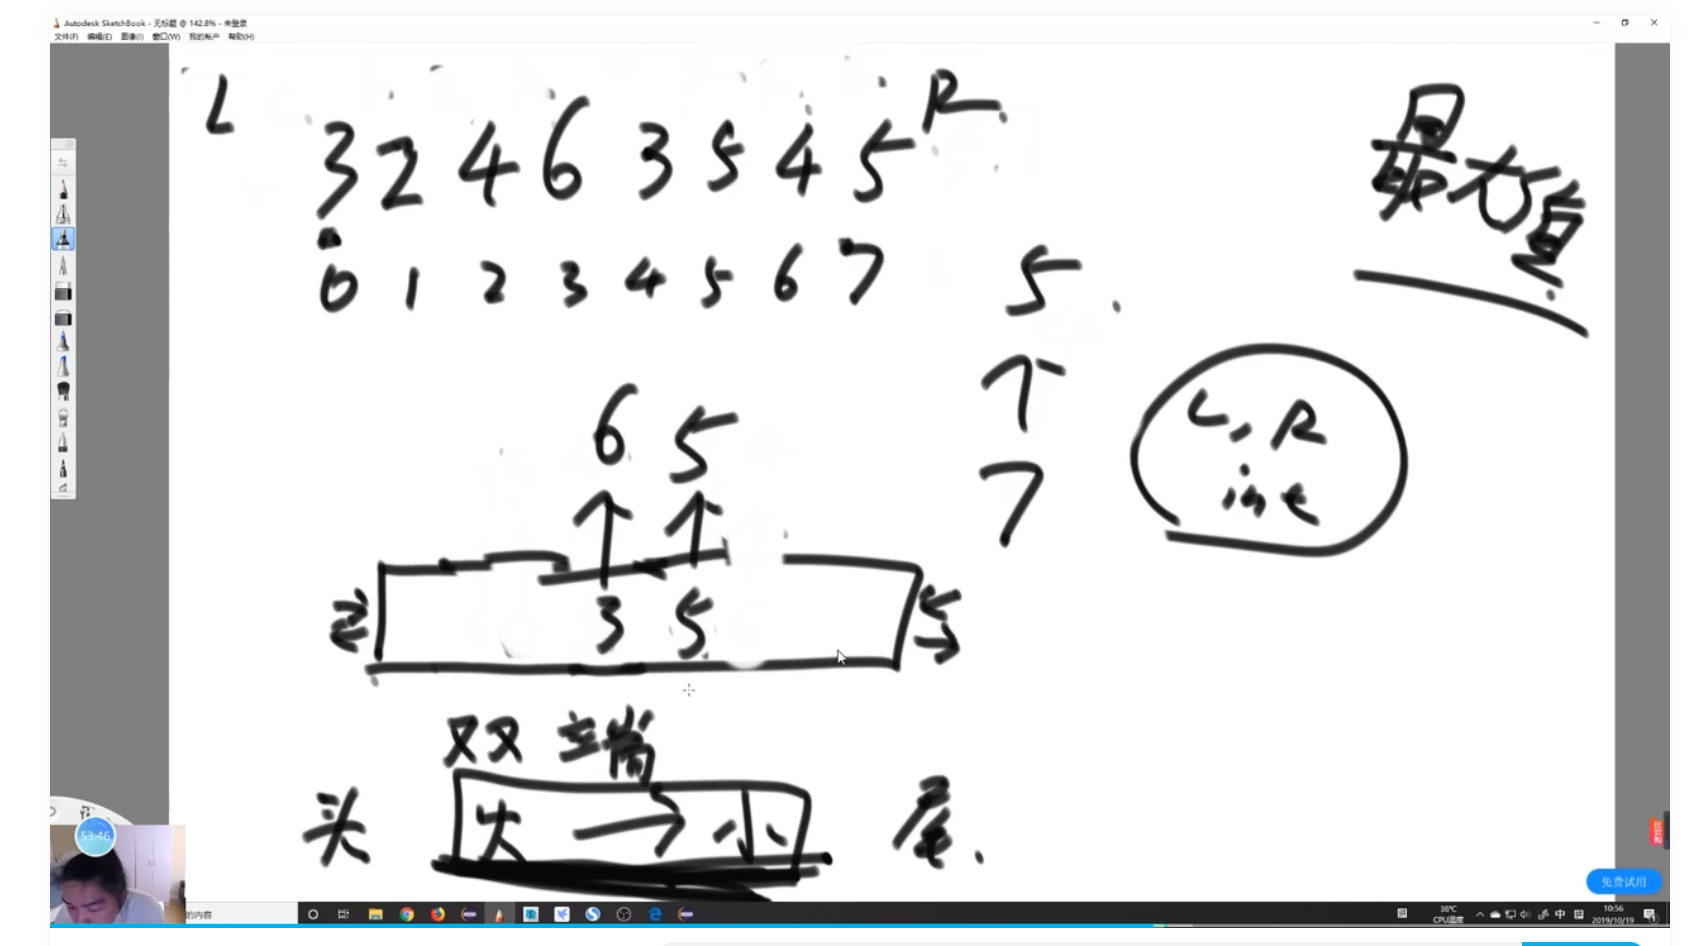 Autodesk SketchBook - 无标题 @ 142.8% - 未登录
文件(F) 编辑(E) 图像(I) 窗口(W) 我的帐户 帮助(H)
L 3 2 4 6 3 5 4 5 R
最大值
0 1 2 3 4 5 6 7
5
6 5
7
L, R
int
3 5
双端
头 大 小 尾
53:46
免费试用
的内容
36°C
CPU温度
中
10:56
2019/10/19